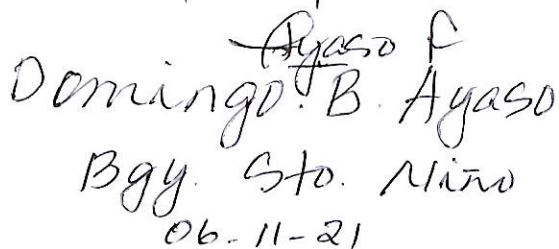 Ayaso
Domingo. B. Ayaso
Bgy. Sto. Niño
06-11-21